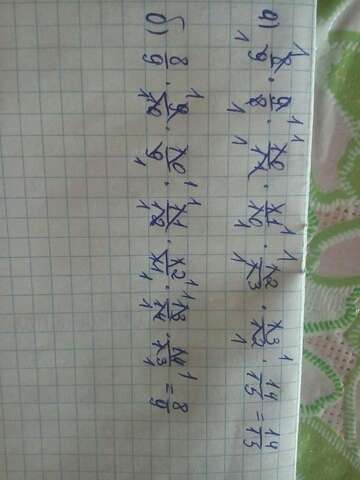 а) 8/9 · 9/8 · 10/11 · 11/10 · 12/13 · 13/12 · 14/15 = 14/15
б) 8/9 · 9/10 · 10/9 · 11/12 · 12/11 · 13/14 · 14/13 = 8/9